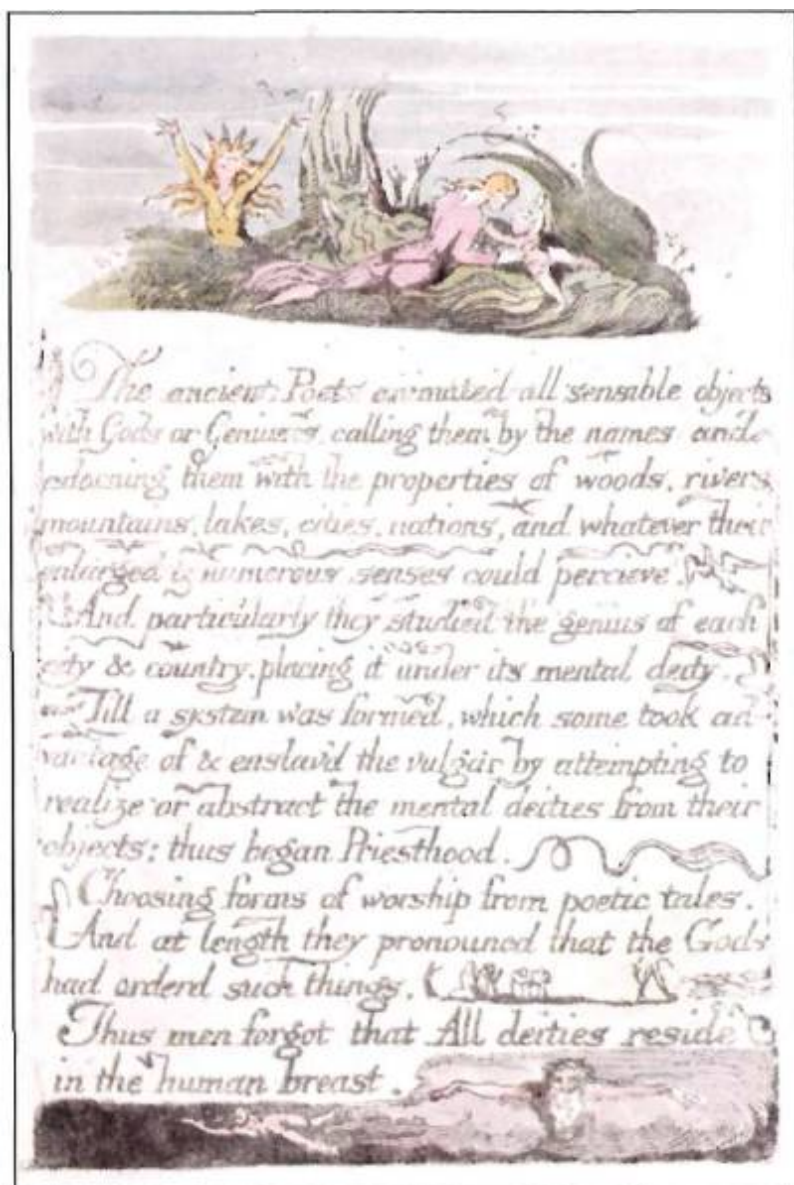 The ancient Poets animated all sensible objects
with Gods or Geniuses, calling them by the names and
adorning them with the properties of woods, rivers,
mountains, lakes, cities, nations, and whatever their
enlarged & numerous senses could percieve.
And particularly they studied the genius of each
city & country, placing it under its mental deity.
Till a system was formed, which some took ad-
vantage of & enslav'd the vulgar by attempting to
realize or abstract the mental deities from their
objects: thus began Priesthood.
Choosing forms of worship from poetic tales.
And at length they pronouncd that the Gods
had orderd such things.
Thus men forgot that All deities reside
in the human breast.